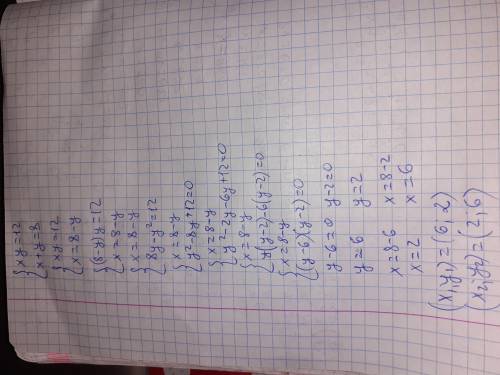 {xy=12
{x+y=8
{xy=12
{x=8-y
{(8-y)y=12
{x=8-y
{x=8-y
{8y-y²=12
{x=8-y
{y²-8y+12=0
{x=8-y
{y²-2y-6y+12=0
{x=8-y
{y(y-2)-6(y-2)=0
{x=8-y
{(y-6)(y-2)=0
y-6=0 y-2=0
y=6 y=2
x=8-6 x=8-2
x=2 x=6
(x₁,y₁)=(6;2)
(x₂,y₂)=(2;6)